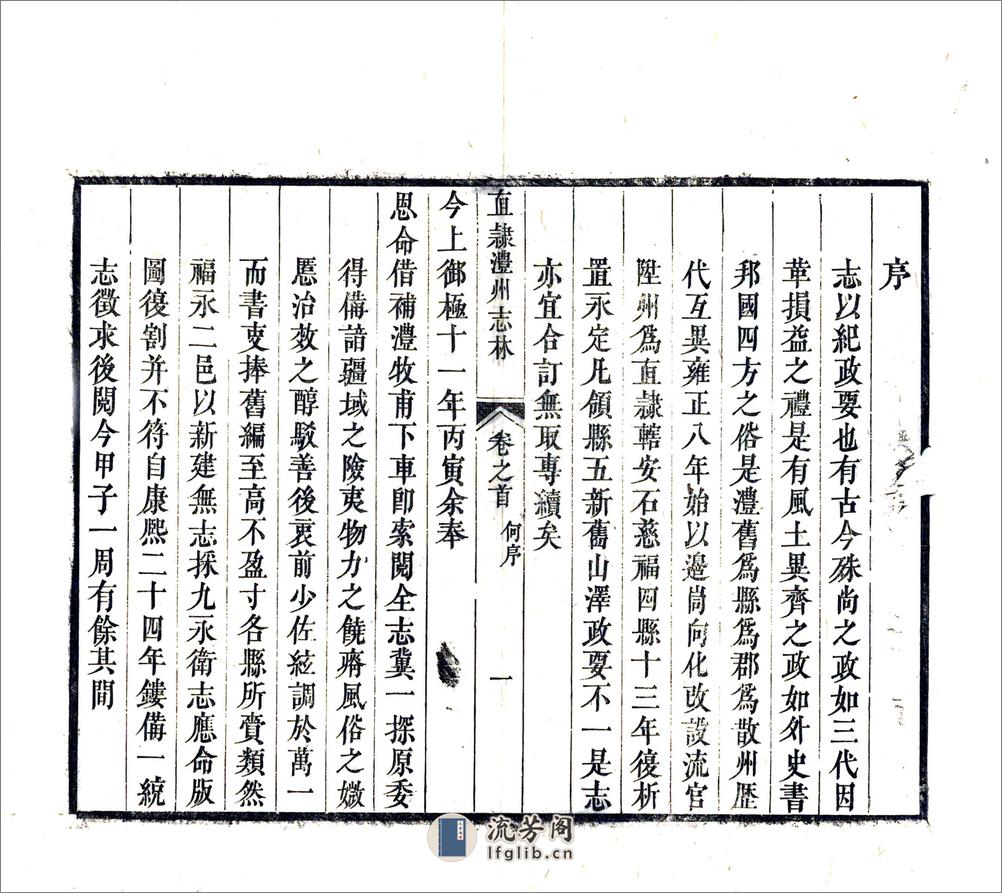 序
志以紀政要也有古今殊尚之政如三代因
革損益之禮是有風土異齊之政如外史書
邦國四方之俗是澧舊爲縣爲郡爲散州歷
代互異雍正八年始以邊峝向化改設流官
陞州爲直隷轄安石慈福四縣十三年復析
置永定凡領縣五新舊山澤政要不一是志
亦宜合訂無取專續矣
直隷澧州志林
卷之首
何序
一
今上御極十一年丙寅余奉
恩命借補澧牧甫下車卽索閱全志冀一探原委
得備諳疆域之險夷物力之饒瘠風俗之媺
慝治效之醇駁善後衷前少佐絃調於萬一
而書吏捧舊編至高不盈寸各縣所賫類然
福永二邑以新建無志採九永衛志應命版
圖復割并不符自康熙二十四年鏤備一統
志徵求後閱今甲子一周有餘其間
流芳阁
lfglib.cn